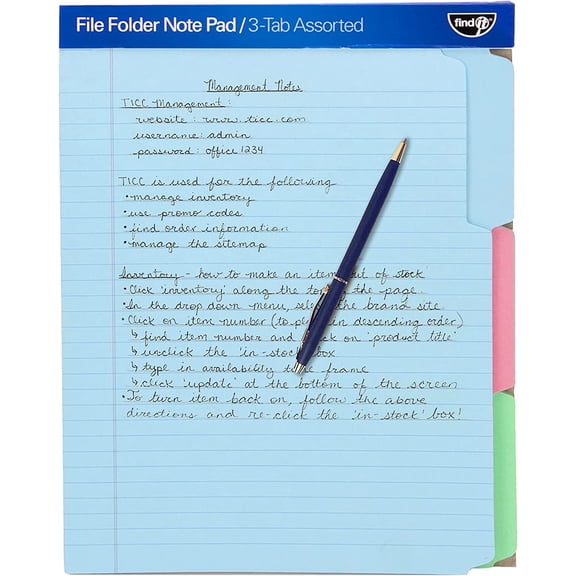 File Folder Note Pad / 3-Tab Assorted
find it
Management Notes
TICC Management:
website: www.ticc.com
username: admin
password: office1234
TICC is used for the following
• manage inventory
• use promo codes
• find order information
• manage the sitemap
Inventory - how to make an item out of stock
• Click 'inventory' along the top of the page.
• In the drop down menu, select the brand site.
• Click on item number (to put in descending order)
↳ find item number and click on 'product title'
↳ unclick the 'in-stock' box
↳ type in availability time frame
↳ click 'update' at the bottom of the screen
• To turn item back on, follow the above
directions and re-click the 'in-stock' box!